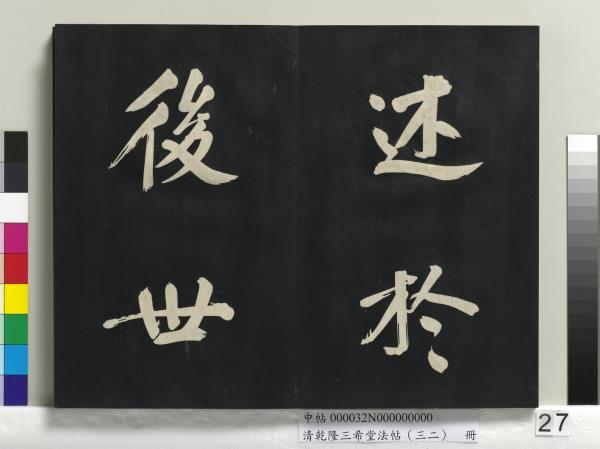 述於
後世
中帖 000032N000000000
清乾隆三希堂法帖（三二） 冊
27